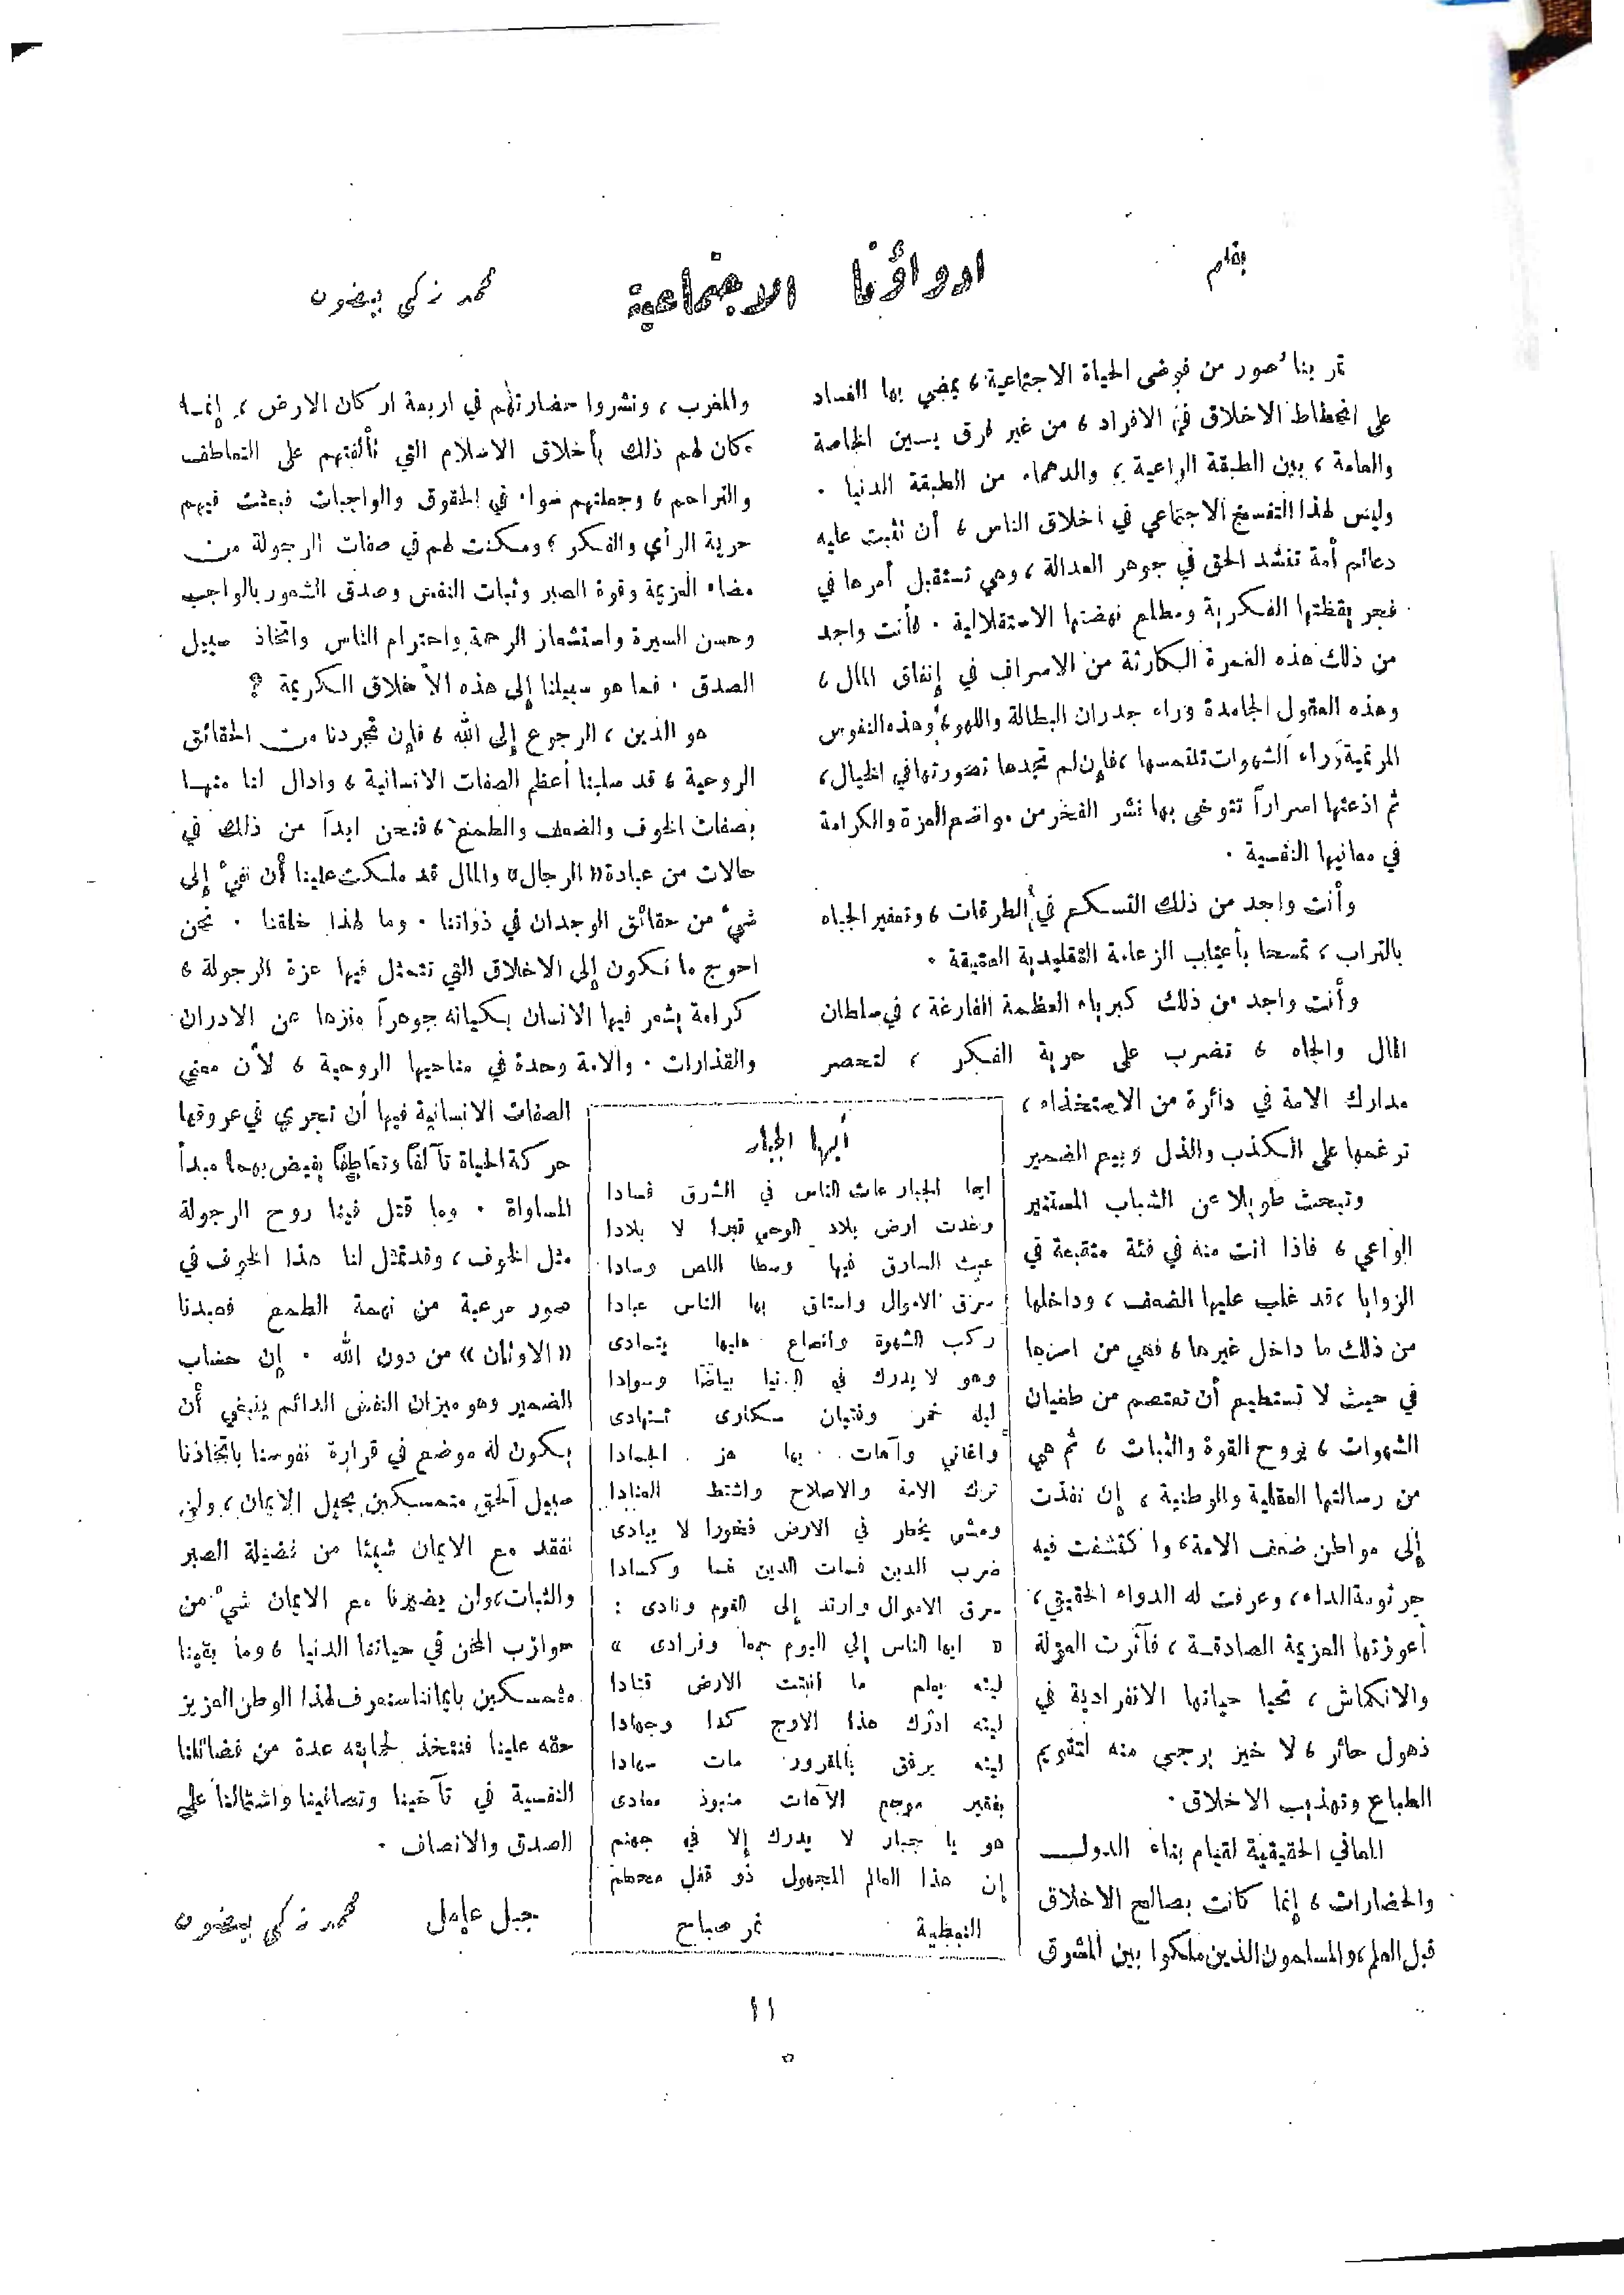 بقلم
ادواؤنا الاجتماعية
محمد زكي بيضون
تمر بنا صور من فوضى الحياة الاجتماعية، يمضي بها الفساد
على انحطاط الاخلاق في الافراد، من غير فرق بـين الخاصة
والعامة، بين الطبقة الراعية، والدهماء من الطبقة الدنيا .
وليس لهذا التفسخ الاجتماعي في اخلاق الناس، أن تثبت عليه
دعائم أمة تنشد الحق في جوهر العدالة، وهي تستقبل أمرها في
فجر يقظتها الفكرية ومطلع نهضتها الاستقلالية . فأنت واجد
من ذلك هذه الغمرة الكارثة من الاسراف في إنفاق المال،
وهذه العقول الجامدة وراء جدران البطالة واللهو، وهذه النفوس
المرتمية وراء الشهوات تلتمسها، فإن لم تجدها تصورتها في الخيال،
ثم اذعتها اسراراً تتوخى بها نشر الفخر من مواضع العزة والكرامة
في معانيها النفسية .
وأنت واجد من ذلك التسكع في الطرقات، وتعفير الجباه
بالتراب، تمسحا بأعتاب الزعامة التقليدية العتيقة .
وأنت واجد من ذلك كبرياء العظمة الفارغة، في سلطان
المال والجاه، تضرب على حرية الفكر، لتحصر
مدارك الامة في دائرة من الاستخذاء،
ترغمها على الكذب والذل وبيع الضمير
وتبحث طويلا عن الشباب المستنير
الواعي، فاذا انت منه في فئة منقبعة في
الزوايا، قد غلب عليها الضعف، وداخلها
من ذلك ما داخل غيرها، فهي من امرها
في حيث لا تستطيع أن تعتصم من طغيان
الشهوات، بروح القوة والثبات، ثم هي
من رسالتها العقلية والوطنية، إن نفذت
إلى مواطن ضعف الامة، واكتشفت فيه
جرثومة الداء، وعرفت له الدواء الحقيقي،
أعوزتها العزيمة الصادقـة، فآثرت العزلة
والانكماش، تحيا حياتها الانفرادية في
ذهول حائر، لا خير يرجى منه لتقويم
الطباع وتهذيب الاخلاق .
المعاني الحقيقية لقيام بناء الدول
والحضارات، إنما كانت بصالح الاخلاق
قبل العلم، والمسلمون الذين ملكوا بين المشرق
والمغرب، ونشروا حضارتهم في اربعة اركان الارض، إنمـا
كان لهم ذلك بأخلاق الاسلام التي تألفتهم على التعاطف
والتراحم، وجعلتهم سواء في الحقوق والواجبات فبعثت فيهم
حرية الرأي والفكر؛ ومكنت لهم في صفات الرجولة من
مضاء العزيمة وقوة الصبر وثبات النفس وصدق الشعور بالواجب
وحسن السيرة واستشعار الرحمة واحترام الناس واتخاذ سبيل
الصدق . فما هو سبيلنا إلى هذه الأخلاق الكريمة ؟
هو الدين، الرجوع إلى الله، فإن تجردنا من الحقائق
الروحية، قد سلبنا أعظم الصفات الانسانية، وادال لنا منهـا
بصفات الخوف والضعف والطمع، فنحن ابداً من ذلك في
حالات من عبادة «الرجال» والمال قد ملكت علينا أن نفيء إلى
شيء من حقائق الوجدان في ذواتنا . وما لهذا خلقنا . نحن
احوج ما نكون إلى الاخلاق التي تتمثل فيها عزة الرجولة،
كرامة يشعر فيها الانسان بكيانه جوهراً منزها عن الادران
والقذارات . والامة وحدة في مناحيها الروحية، لأن معنى
الصفات الانسانية فيها أن تجري في عروقها
حركة الحياة تآلفاً وتعاطفاً يفيض بهما مبدأ
المساواة . وما قتل فينا روح الرجولة
مثل الخوف، وقد تمثل لنا هذا الخوف في
صور مرعبة من نهمة الطمع فعبدنا
«الاوثان» من دون الله . إن حساب
الضمير وهو ميزان النفس الدائم ينبغي أن
يكون له موضع في قرارة نفوسنا باتخاذنا
سبيل الحق متمسكين بحبل الايمان، ولن
نفقد مع الايمان شيئا من فضيلة الصبر
والثبات، ولن يضيرنا مع الايمان شيء من
حوازب المحن في حياتنا الدنيا، وما بقينا
متمسكين بايماننا سنعرف لهذا الوطن العزيز
حقه علينا فنتخذ لحمايته عدة من فضائلنا
النفسية في تآخينا وتصافينا واشتمالنا على
الصدق والانصاف .
جبل عامل محمد زكي بيضون
أيها الجبار
ايها الجبار عاث الناس في الشرق فسادا
وغدت ارض بلاد الوحي قبرا لا بلادا
عبث السارق فيها وسطا اللص وسادا
سرق الاموال واستاق بها الناس عبادا
ركب الشهوة وانصاع عليها يتمادى
وهو لا يدرك في الدنيا بياضا وسوادا
ليله خمر وفتيان سكارى تتهادى
واغاني وآهات بها هز الجمادا
ترك الامة والاصلاح واشتط العنادا
ومشى يخطر في الارض فخورا لا يبادى
ضرب الدين فمات الدين غما وكسادا
سرق الاموال وارتد إلى القوم ونادى :
« ايها الناس إلي اليوم جمعا وفرادى »
ليته يعلم ما انبتت الارض قتادا
ليته ادرك هذا الاوج كدا وجهادا
ليته يرفق بالمقرور مات سهادا
بفقير موجع الآهات منبوذ معادى
هو يا جبار لا يدرك إلا في جهنم
إن هذا العالم المجهول ذو قفل محطم
النبطية نمر صباح
١١